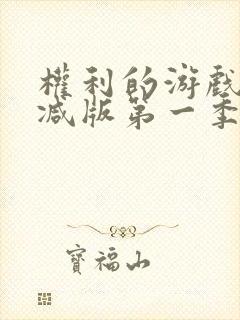 權利的游戲
减版第一季
寶福山